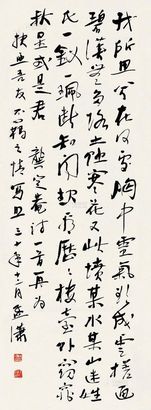 我所思兮在何處胸中靈氣欲成雲槎通
碧漢無多路土蝕寒花又此墳某水某山迷姓
氏一釵一珮斷知聞起看歷歷樓臺外窈窕
秋星或是君 龔定菴詩一首再為
吾友之情寫三十年十二月